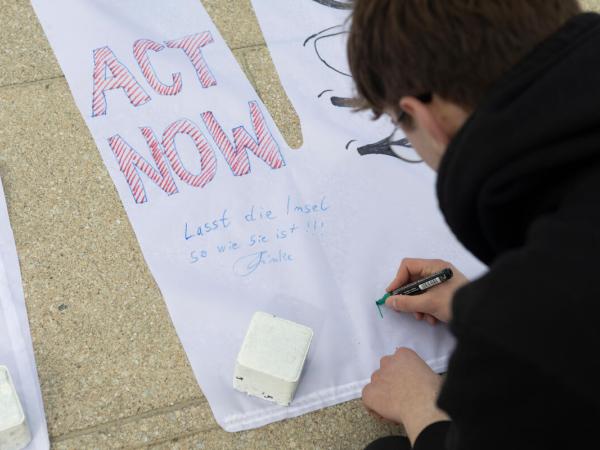 ACT
NOW
Lasst die Insel
so wie sie ist !!!